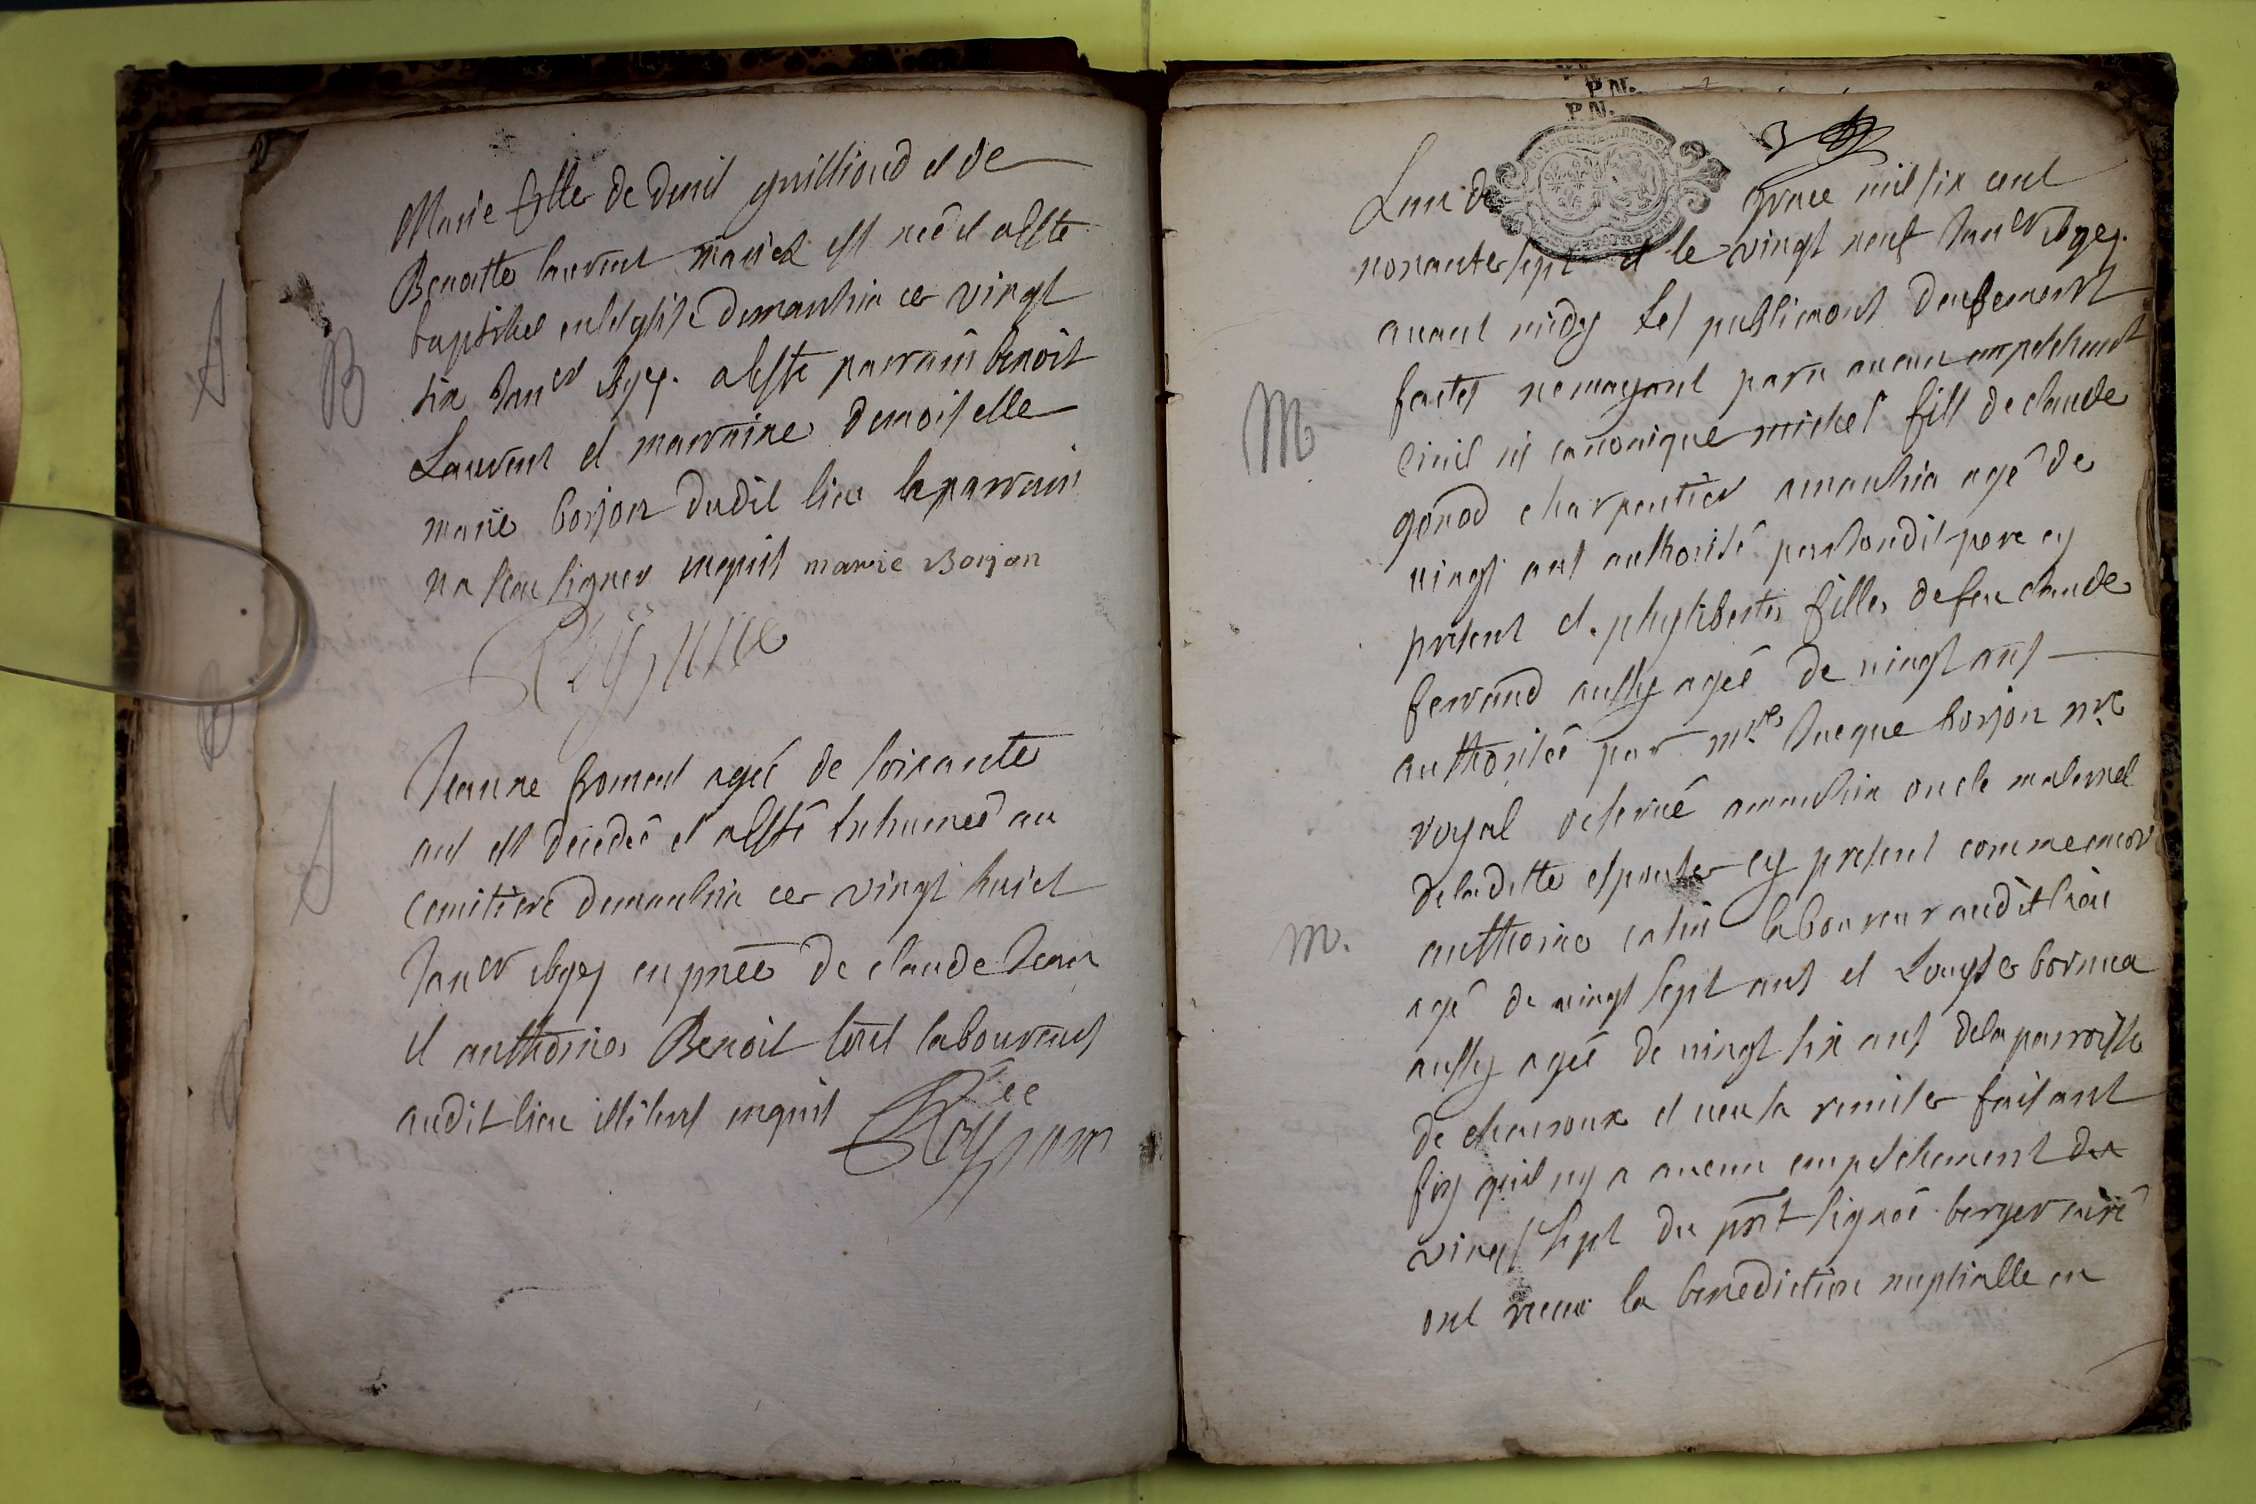 B
Marie fille de denis guillioud et de
Benoitte laurent mariés est née et a esté
baptisée en leglise de manthia ce vingt
six Janer a esté parrain benoit
Laurent et marraine demoiselle
marie borjon dudit lieu le parrain
na sceu signer enquis marie Borjon
S
Jeanne froment agée de soixante
ans est decedée et a esté inhumée au
cemitiere de manthia ce vingt huict
Janer en pnce de claude Jean
et anthoine Benoit tous laboureurs
audit lieu illiteres enquis
P.N.
P.N.
3
Lan de grace mil six cent
nonante sept et le vingt neuf Janer
avant midy les publications deubement
faites ne mayant paru aucun empeschement
M
civil ni canonique michel fils de claude
gonod charpentier a manthia agé de
vingt ans authorisé par sondit pere cy
present et phyliberte fille de feu claude
ferrand aussy agée de vingt ans
authorisée par mre Jacque borjon nre
royal reservé a manthia oncle maternel
de laditte espouse cy present comme encor
m.
anthoine catin laboureur audit lieu
agé de vingt sept ans et Louyse
aussy agée de vingt six ans de la parroisse
de chavroux et veu la remise faisant
foy quil ny a aucun empeschement du
vingt sept du pnt signée berger curé
ont receu la benediction nuptialle en